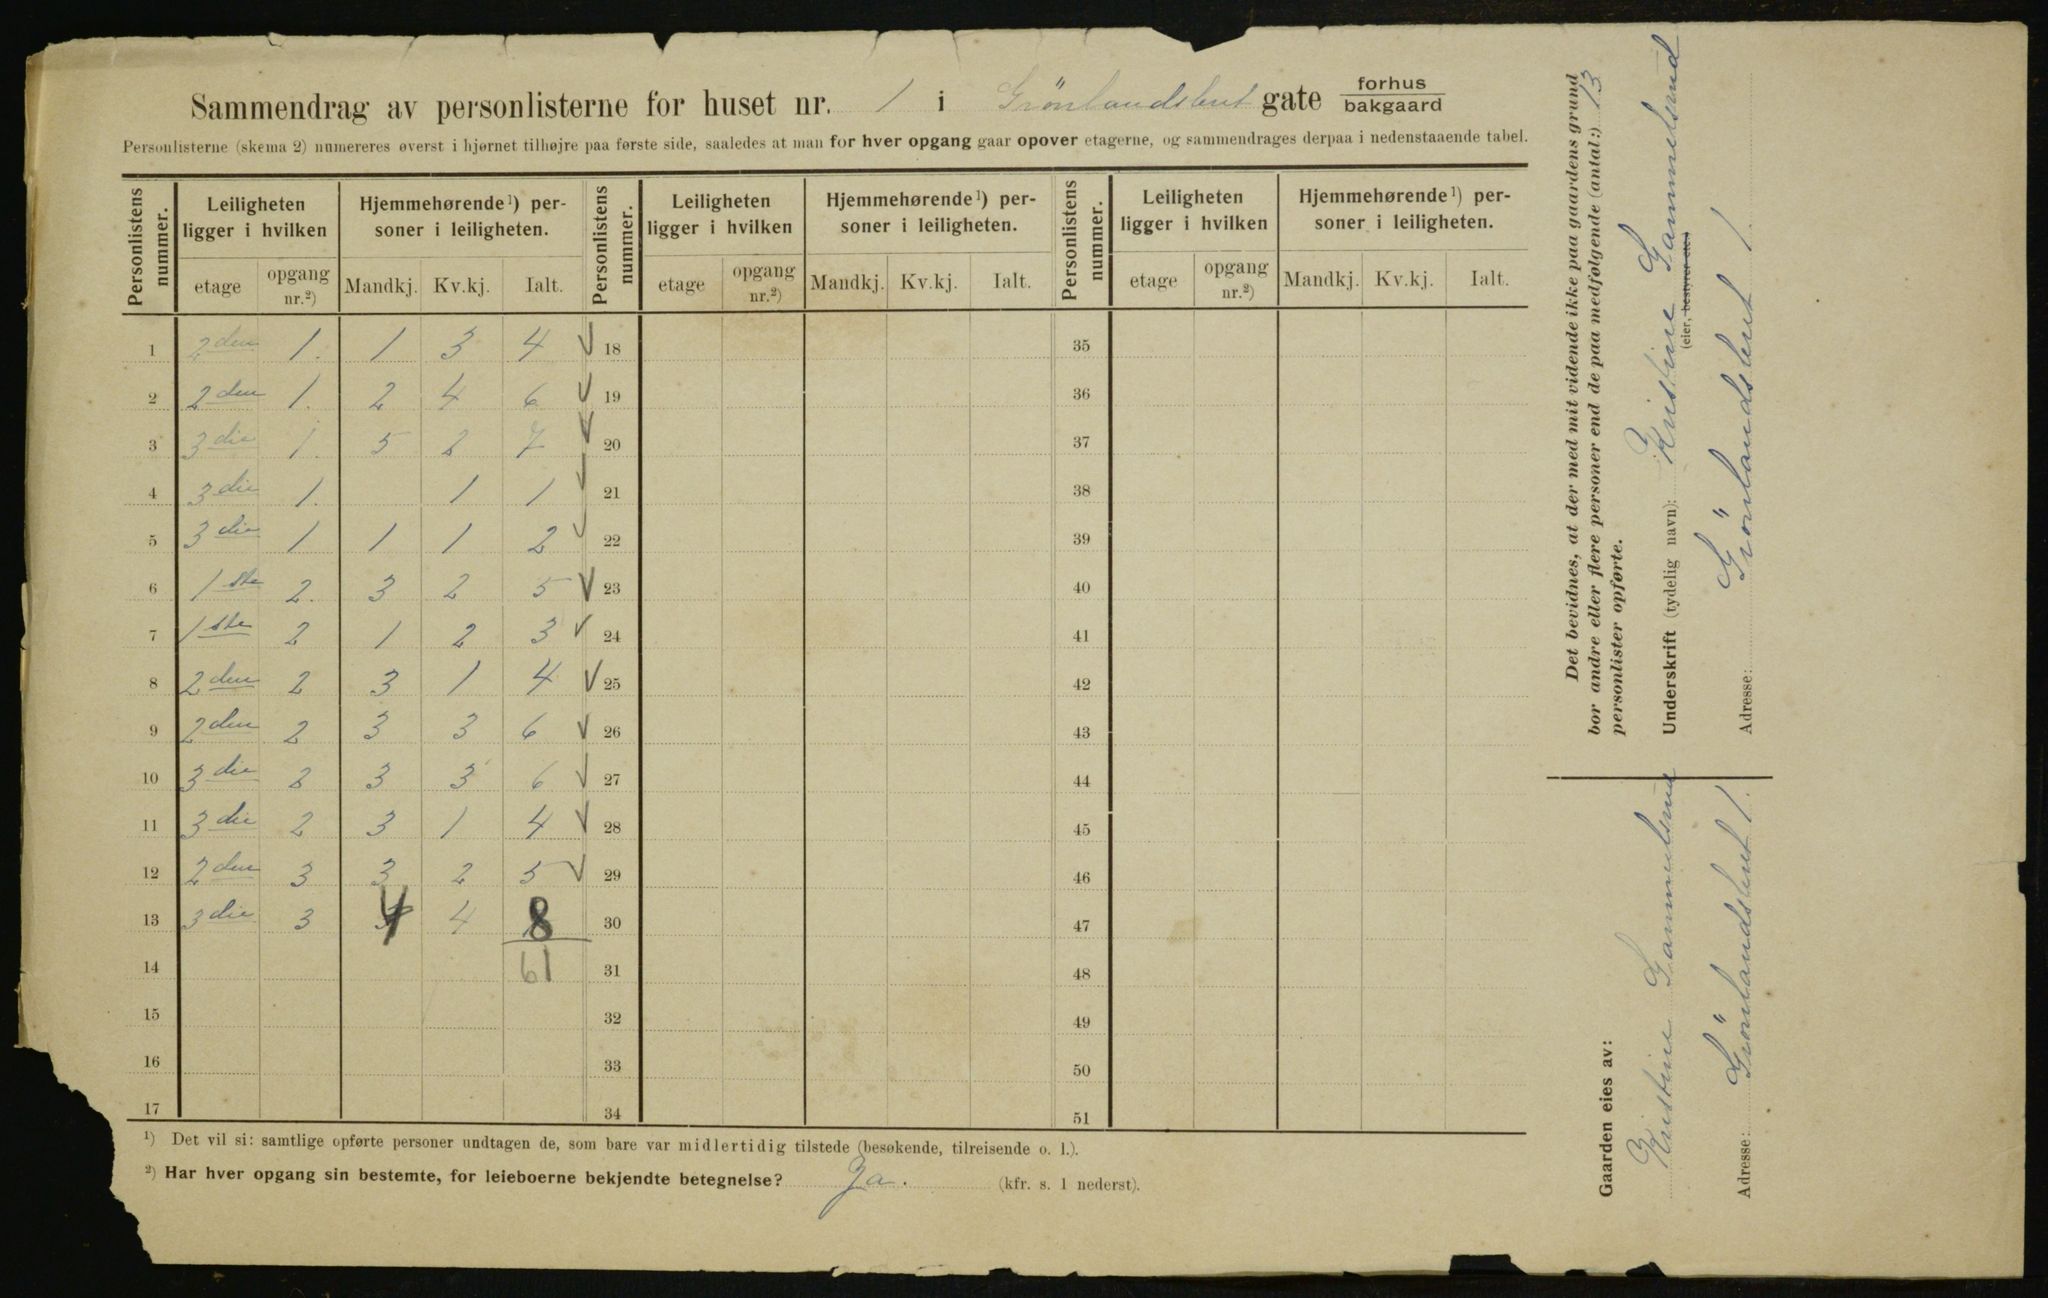 Sammendrag av personlisterne for huset nr. 1 i Grönlandsleret gate forhus bakgaard
Personlisterne (skema 2) numereres øverst i hjørnet tilhøjre paa første side, saaledes at man for hver opgang gaar opover etagerne, og sammendrages derpaa i nedenstaaende tabel.
Personlistens nummer. Leiligheten ligger i hvilken Hjemmehørende ¹) personer i leiligheten. Personlistens nummer. Leiligheten ligger i hvilken Hjemmehørende ¹) personer i leiligheten. Personlistens nummer. Leiligheten ligger i hvilken Hjemmehørende ¹) personer i leiligheten.
etage opgang nr.²) Mandkj. Kv.kj. Ialt. etage opgang nr.²) Mandkj. Kv.kj. Ialt. etage opgang nr.²) Mandkj. Kv.kj. Ialt.
1 2den 1. 1 3 4 18 35
2 2den 1. 2 4 6 19 36
3 3die 1. 5 2 7 20 37
4 3die 1. 1 1 21 38
5 3die 1 1 1 2 22 39
6 1ste 2. 3 2 5 23 40
7 1ste 2 1 2 3 24 41
8 2den 2 3 1 4 25 42
9 2den 2 3 3 6 26 43
10 3die 2 3 3 6 27 44
11 3die 2 3 1 4 28 45
12 2den 3 3 2 5 29 46
13 3die 3 4 4 8 30 47
14 61 31 48
15 32 49
16 33 50
17 34 51
¹) Det vil si: samtlige opførte personer undtagen de, som bare var midlertidig tilstede (besøkende, tilreisende o. l.).
²) Har hver opgang sin bestemte, for leieboerne bekjendte betegnelse? Ja. (kfr. s. 1 nederst).
Det bevidnes, at der med mit vidende ikke paa gaardens grund
bor andre eller flere personer end de paa medfølgende (antal:) 13
personlister opførte.
Underskrift (tydelig navn): Kristine Gammelsrud
(eier, bestyrer etc.)
Adresse: Grönlandsleret 1.
Gaarden eies av:
Kristine Gammelsrud
Adresse: Grönlandsleret 1.